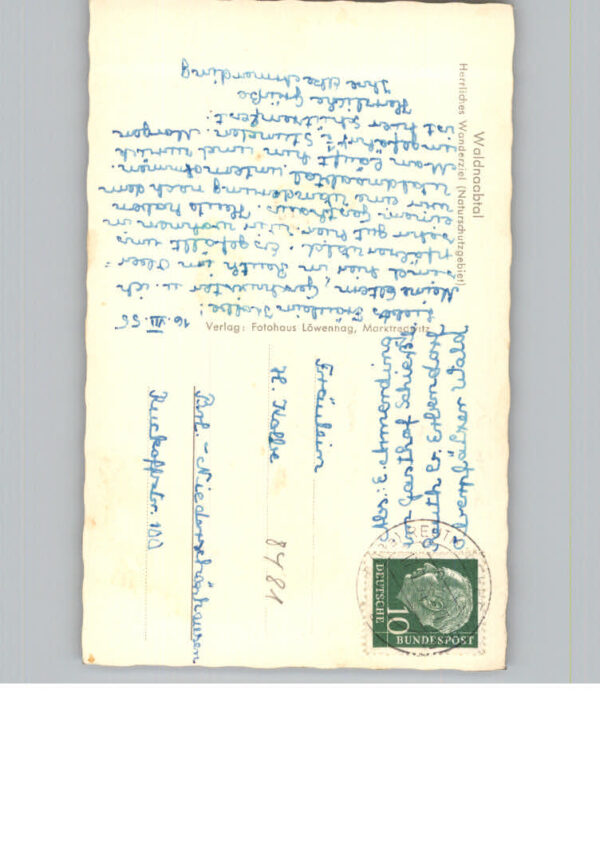 Waldnaabtal
Herrliches Wanderziel (Naturschutzgebiet)
16.VII.56
Liebes Fräulein Kolbe!
Meine Eltern, Geschwister u. ich
sind hier in Reuth im Ober-
pfälzerwald. Es gefällt uns
sehr gut hier. Wir wohnen in
einem Gasthaus. Heute haben
wir eine Wanderung nach dem
Waldnaabtal unternommen.
Man läuft hin und zurück
ungefähr Stunden. Morgen
ist hier Schützenfest.
Herzliche Grüße
Ihre
Verlag: Fotohaus Löwennag, Marktredwitz
Abs.: E.
Gasthof Schießl
Reuth Kr. Erbendorf
Oberpfälzer Wald
Fräulein
H. Kolbe
Bln.-Niederschönhausen
Kuckhoffstr. 100
8481
DEUTSCHE
BUNDESPOST
10